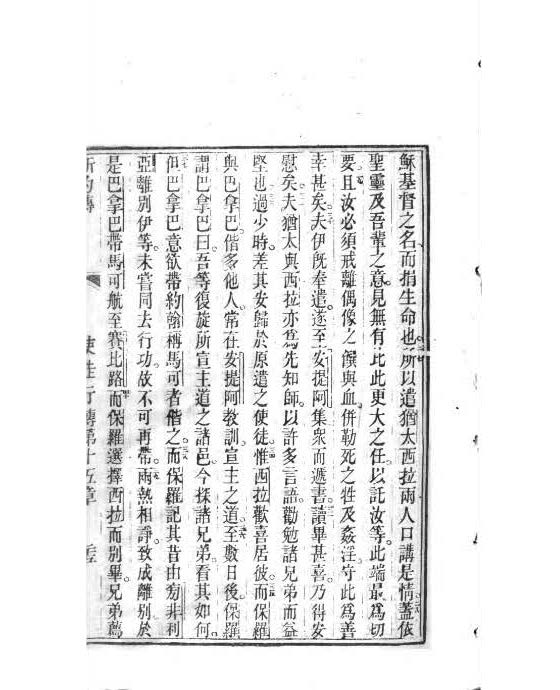 穌基督之名而捐生命也所以遣猶太西拉兩人口講是情蓋依
聖靈及吾輩之意見無有比此更大之任以託汝等此端最爲切
要且汝必須戒離偶像之饌與血併勒死之牲及姦淫守此爲善
幸甚矣夫伊旣奉遣遂至安提阿集衆而遞書讀畢甚喜乃得安
慰矣夫猶太與西拉亦爲先知師以許多言語勸勉諸兄弟而益
堅也過少時差其安歸於原遣之使徒惟西拉歡喜居彼而保羅
與巴拿巴偕多他人常在安提阿教訓宣主之道至數日後保羅
謂巴拿巴曰吾等復旋所宣主道之諸邑今探諸兄弟看其如何
但巴拿巴意欲帶約翰稱馬可者偕之而保羅記其昔由旁非利
亞離別伊等未嘗同去行功故不可再帶兩熱相諍致成離別於
是巴拿巴帶馬可航至賽比路而保羅選擇西拉而別畢兄弟薦
新約傳 使徒行傳第十五章